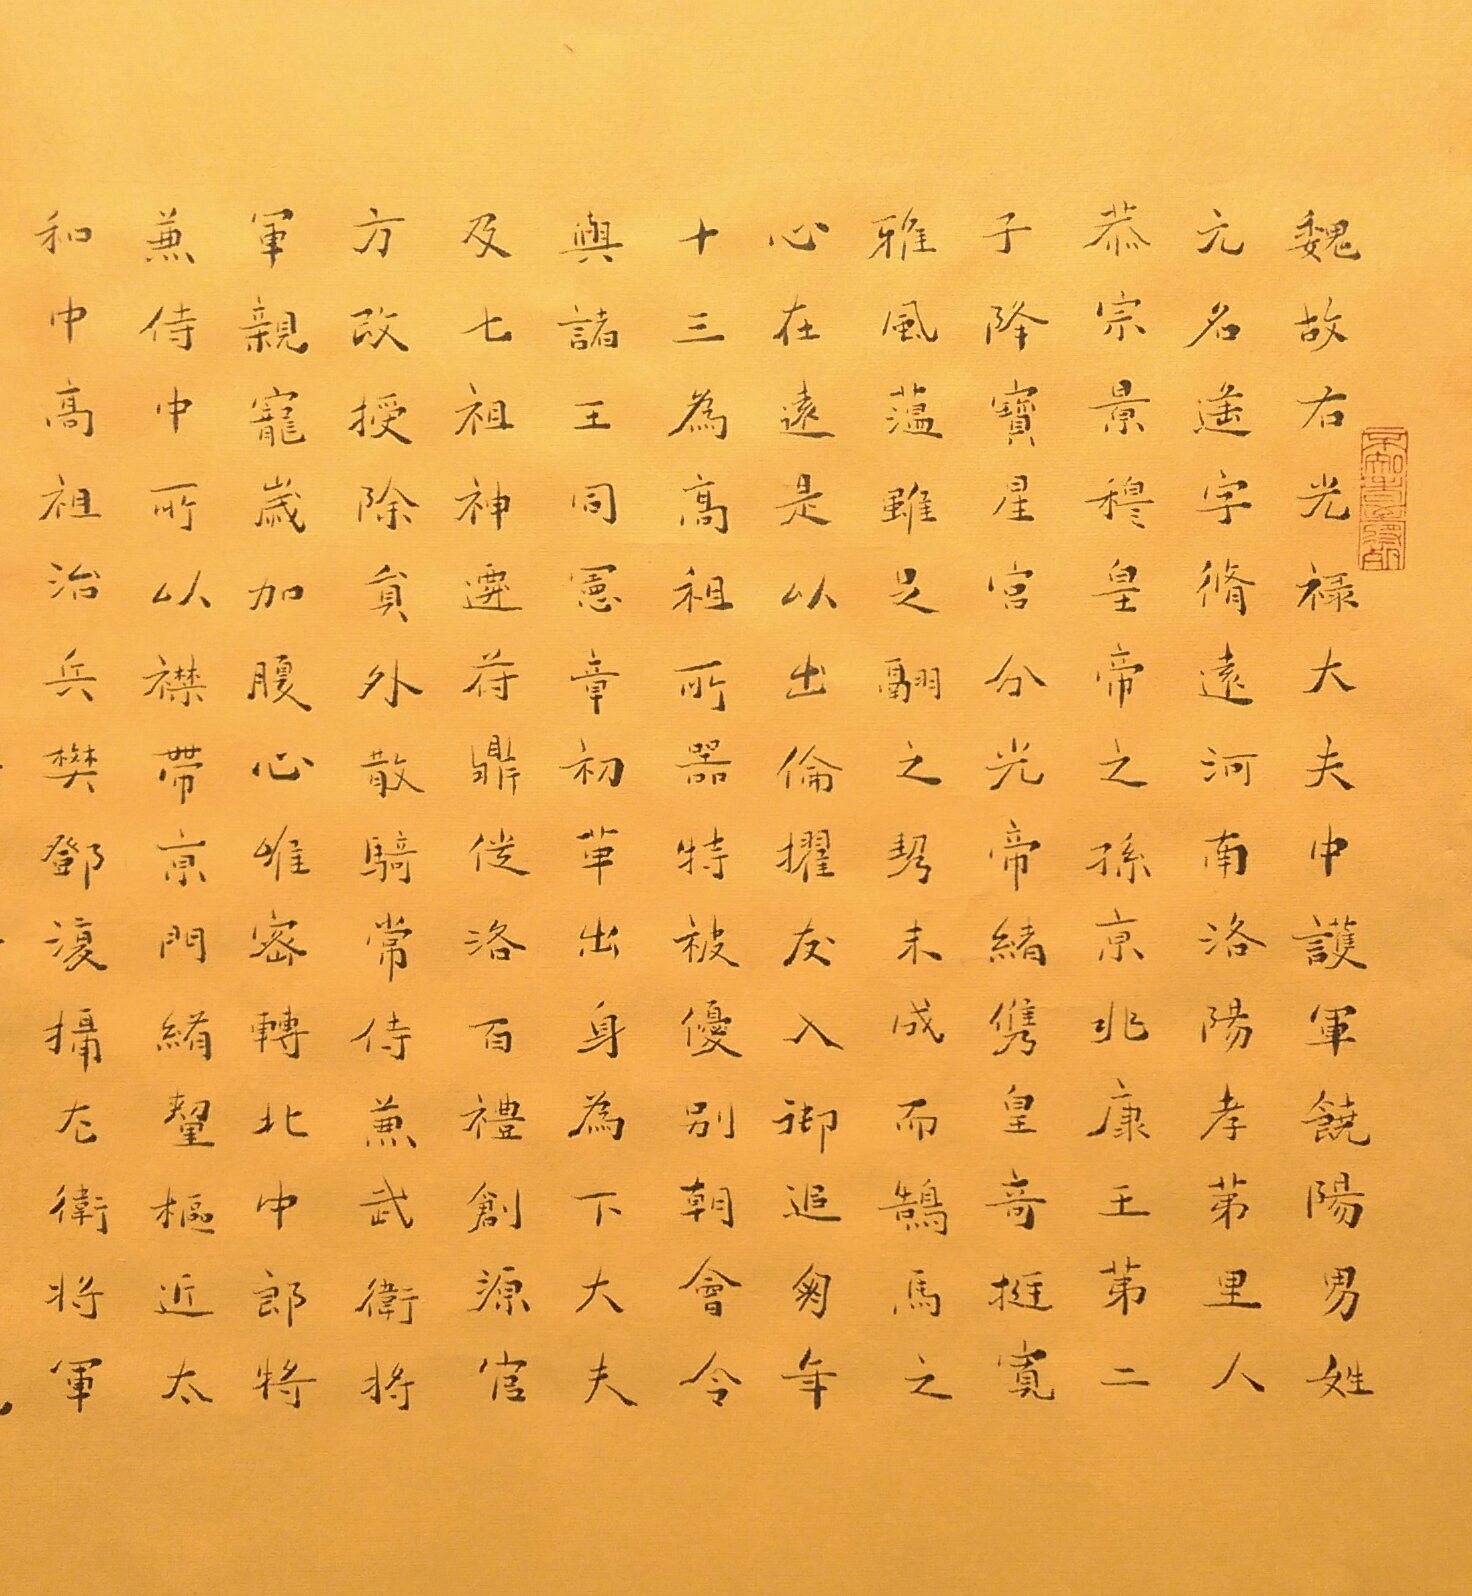 魏故右光禄大夫中護軍饒陽男姓
元名遥字脩遠河南洛陽孝苐里人
恭宗景穆皇帝之孫京兆康王苐二
子降寶星宫分光帝緒儁皇奇挺寬
雅風薀雖足翮之未成而鵠馬之
心在遠是以出倫擢友入御追匈年
十三為高祖所器特被優別朝會令
與諸王同憲章初革出身為下大夫
及七祖神遷苻鼎徙洛百禮創源官
方改授除貟外散騎常侍兼武衛將
軍親寵歲加腹心唯密轉北中郎將
兼侍中所以襟帶京門樞近太
和中高祖治兵樊鄧復攝左衛將軍